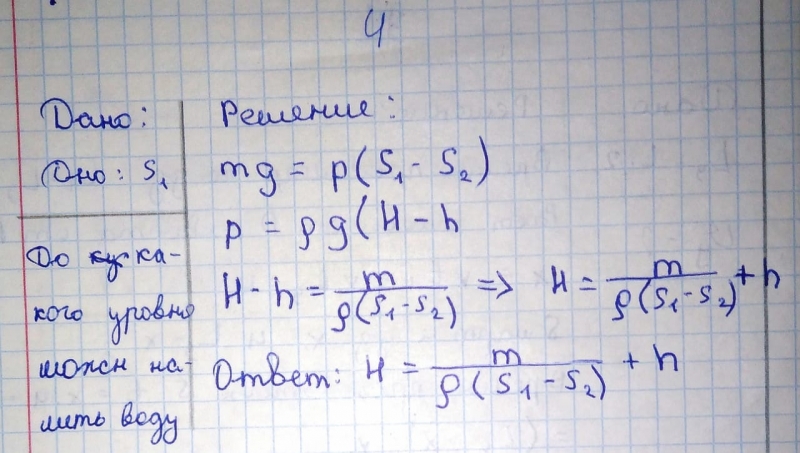 4
Дано:
Оно: S₁
До ка-
кого уровня
можн на-
лить воду
Решение:
mg = p(S₁ - S₂)
p = ρg(H - h
H - h = m/ρ(S₁-S₂) => H = m/ρ(S₁-S₂) + h
Ответ: H = m/ρ(S₁-S₂) + h